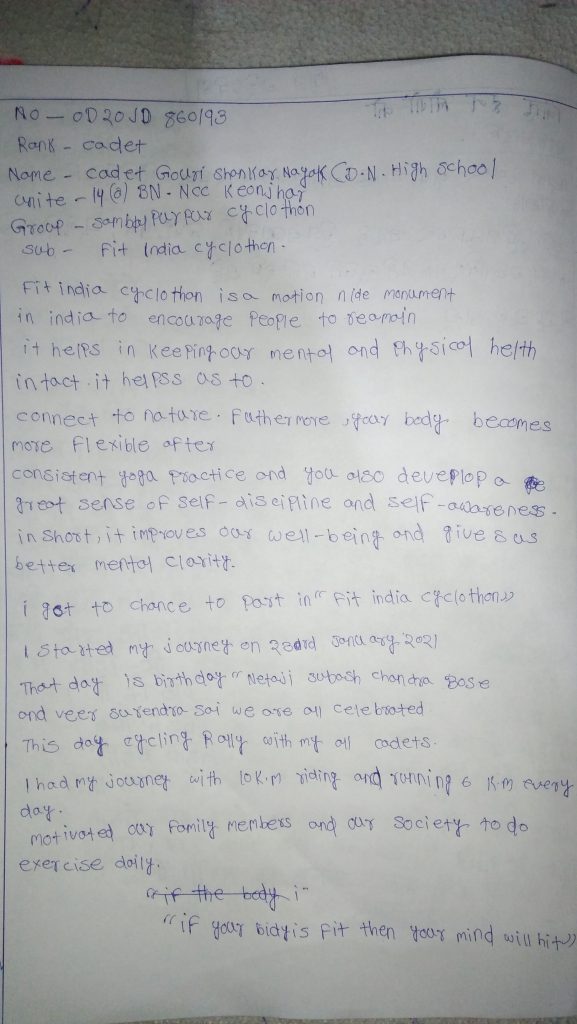 NO - OD20JD 860193
Rank - cadet
Name - cadet Gouri Shankar Nayak (D.N. High school
unite - 14(o) BN. Ncc Keonjhar
Group - Sambalpur cyclothon
Sub - Fit India cyclothon.
Fit india cyclothon is a motion nide monument
in india to encourage People to reamain
it helps in Keeping our mental and Physical helth
in tact. it helpss us to.
connect to nature. Futhermore, your body becomes
more Flexible after
consistent yoga Practice and you also deveplop a
great sense of self-discipline and self-awareness.
in short, it improves our well-being and gives us
better mental clarity.
i got to chance to Part in "Fit india cyclothon"
I started my journey on 23rd January 2021
That day is birthday "Netaji subash chandra Bose
and veer surendra sai we are all celebrated
This day cycling Rally with my all cadets.
I had my journey with 10K.M riding and running 6 K.M every
day.
motivated our Family members and our Society to do
exercise daily.
"if the body i"
"if your bidy is Fit then your mind will hit"